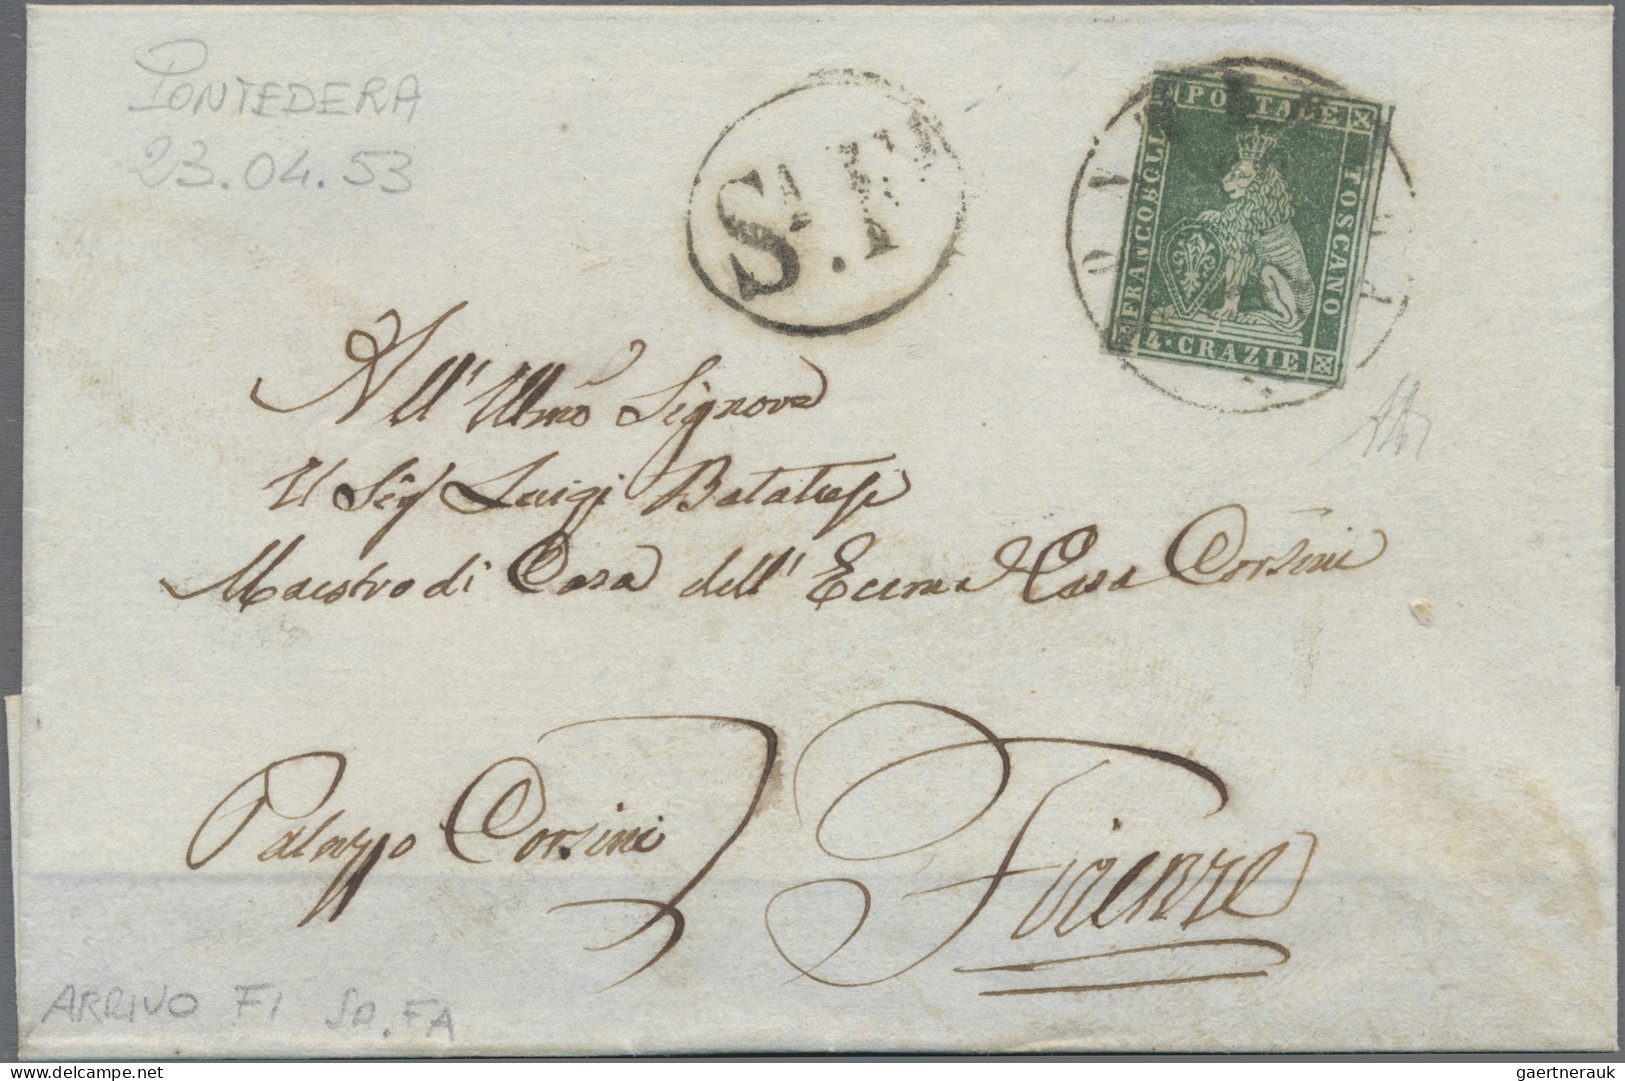 PONTEDERA
23.04.53
FRANCOBOLLO POSTALE TOSCANO
4. CRAZIE
All'Illmo Signore
Il Sig Luigi
Maestro di Casa dell' Eccma Casa Corsini
Palazzo Corsini
Firenze
ARRIVO FI SA.FA
gaertnerauk